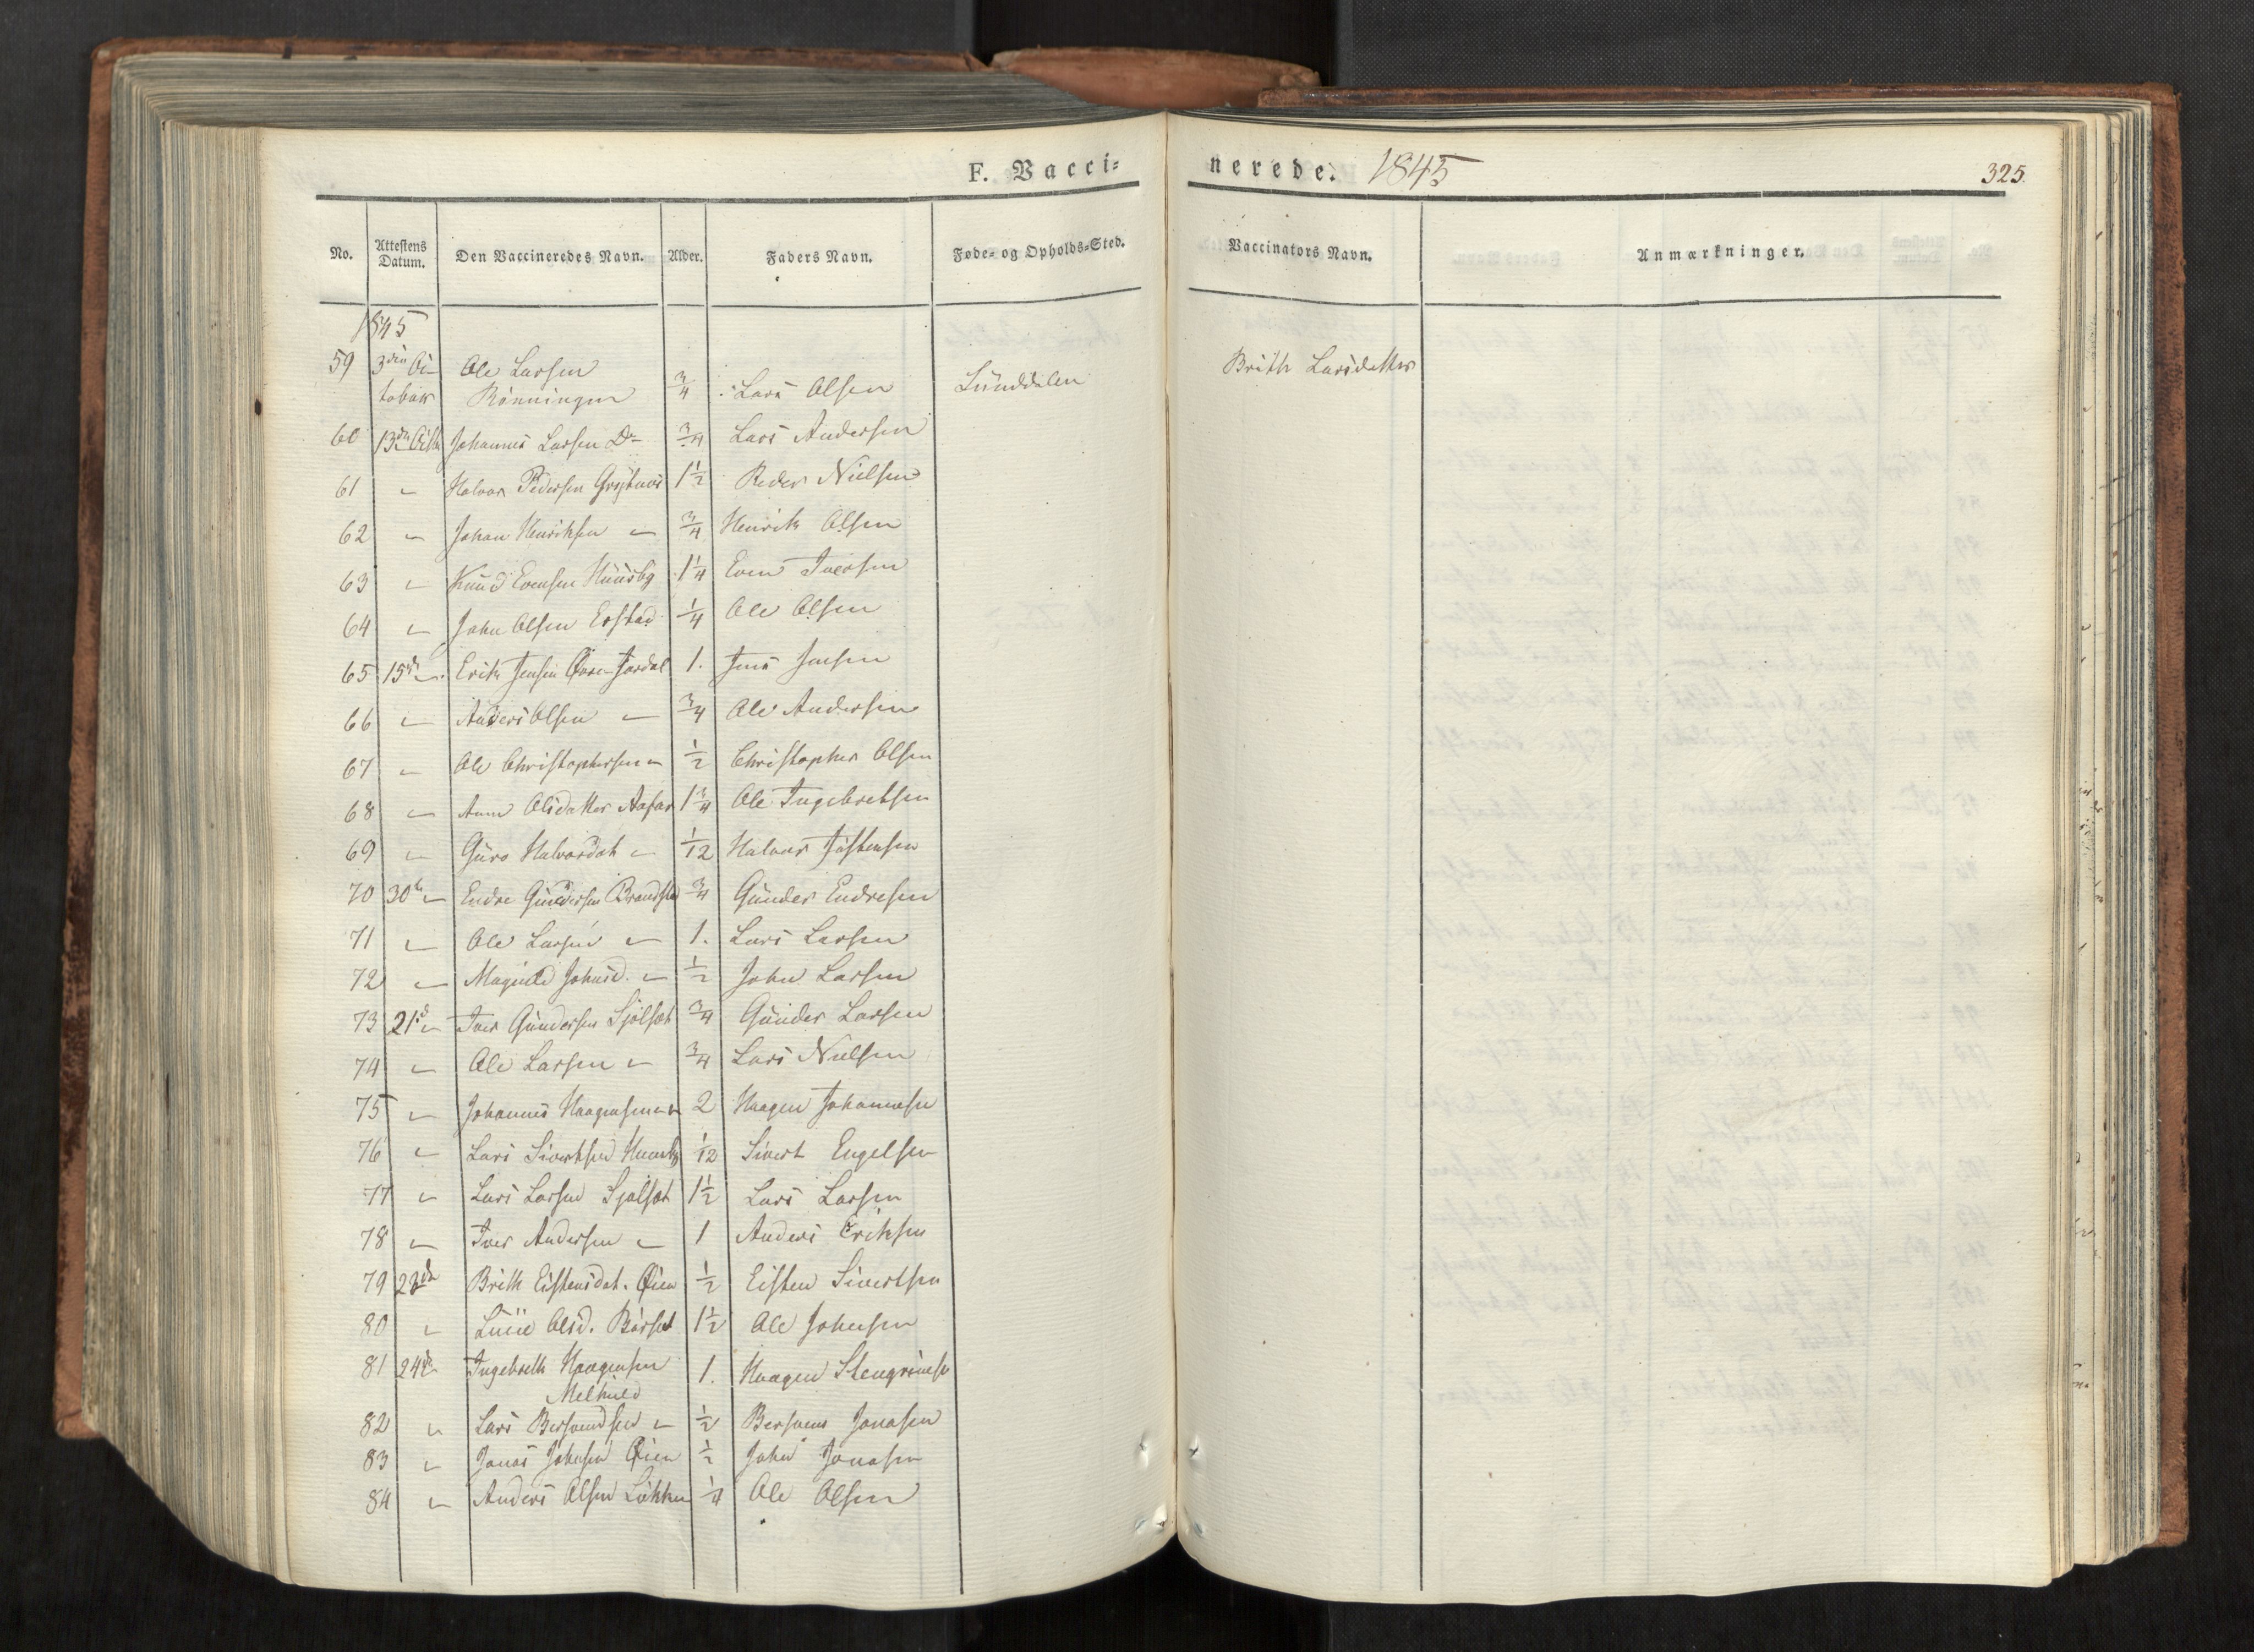 F. Vacci=
nerede. 1845
325.
No. Attestens Datum. Den Vaccineredes Navn. Alder. Faders Navn. Føde= og Opholds=Sted. Vaccinators Navn. Anmærkninger.
1845
59 3den Oc Ole Larsen
tober Rønningen 3/4 Lars Olsen Sunddalen Brith Larsdatter
60 13de Octb Johannes Larsen Do 3/4 Lars Andersen
61 " Halvor Pedersen 1 1/2 Peder Nielsen
62 " Johan Henriksen " 3/4 Henrik Olsen
63 " Knud Evensen Huusby 1 1/4 Even Iversen
64 " John Olsen 1/4 Ole Olsen
65 15de " Erik Jensen Jordal 1. Jens Jensen
66 " Anders Olsen " 3/4 Ole Andersen
67 " Ole Christophersen " 1/2 Christopher Olsen
68 " Anne Olsdatter 1 3/4 Ole Ingebretsen
69 " Guro Halvordat " 1/12 Halvor
70 30te " Endre Gundersen 3/4 Gunder Endresen
71 " Ole Larsen " 1. Lars Larsen
72 " Johnsd. " 1/2 John Larsen
73 21de " Iver Gundersen Sjølset 3/4 Gunder Larsen
74 " Ole Larsen " 3/4 Lars Nielsen
75 " Johannes Haagensen " 2 Haagen Johannesen
76 " Lars Sivertsen Huusby 1/12 Sivert Engelsen
77 " Lars Larsen Sjølset 1 1/2 Lars Larsen
78 " Iver Andersen " 1 Anders Eriksen
79 22de Brith Eistensdat. Øien 1/2 Eisten Sivertsen
80 " Olsd. 1 1/2 Ole Johnsen
81 24de Ingebreth Haagensen
Melhuus 1. Haagen
82 " Lars " 1/2 Jonasen
83 " Jonas Johnsen Øien 1/2 John Jonasen
84 " Anders Olsen Løkken 1/4 Ole Olsen